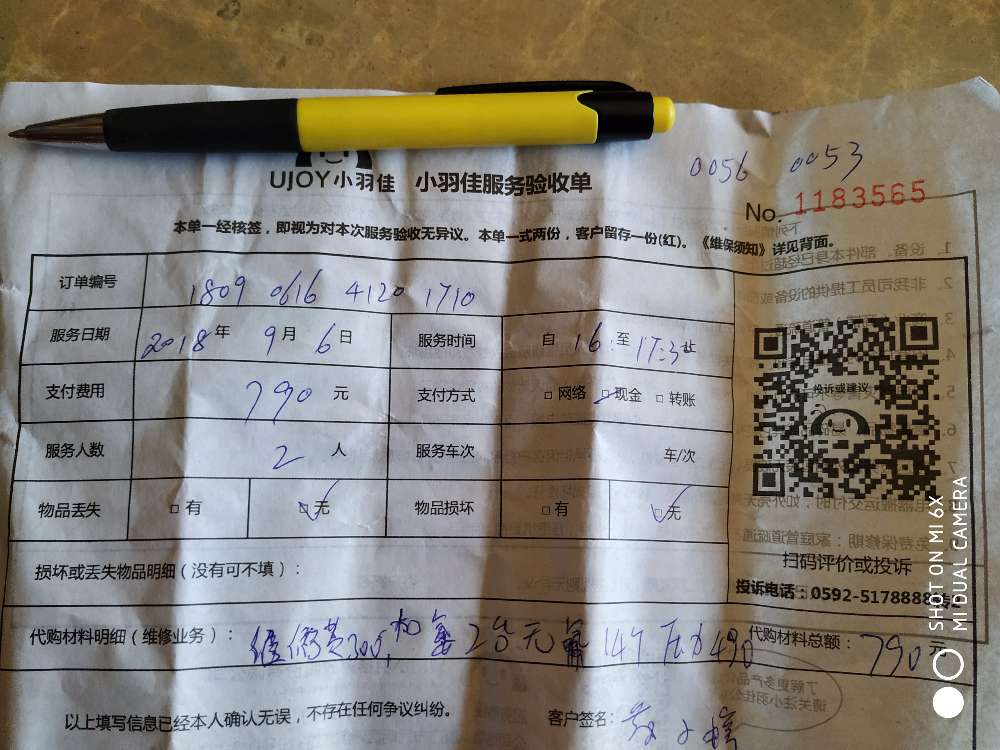 0056 0053
UJOY小羽佳 小羽佳服务验收单
No. 1183565
本单一经核签，即视为对本次服务验收无异议。本单一式两份，客户留存一份(红)。《维保须知》详见背面。
订单编号 1809 0616 4120 1710
服务日期 2018年 9月 6日 服务时间 自 16: 至 17:3
支付费用 790 元 支付方式 □ 网络 □ 现金 □ 转账
服务人数 2 人 服务车次 车/次
物品丢失 □ 有 □ 无 物品损坏 □ 有 □ 无
投诉或建议
扫码评价或投诉
投诉电话：0592-5178888转1
损坏或丢失物品明细（没有可不填）：
代购材料明细（维修业务）： 维修费300, 加 2台 147 490 代购材料总额： 790 元
以上填写信息已经本人确认无误，不存在任何争议纠纷。 客户签名：
SHOT ON MI 6X
MI DUAL CAMERA